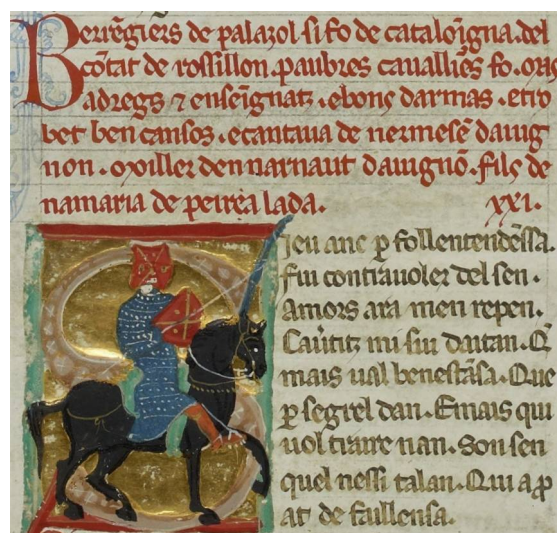 Berrēgiers de palazol si fo de cataloīgna.del
cōtat de rossillon.paubres caualliēs fo.mas
adregs ⁊ enseīgnatz.ebons darmas.etro
bet ben cansos.ecantaua de nermesē dauig
non.moiller den narnaut dauignō.fils de
namaria de peirēa lada. xxi.
Sieu anc p follentendēssa.
Fui contrauoler del sen.
Amors ara men repen.
Cauūtit mi sui daitan.Q̄
mais ual benestāsa.Que
p segrel dan.Emais qui
uol traire nan.Son sen
quel nessi talan.Qui a p
at de faillensa.